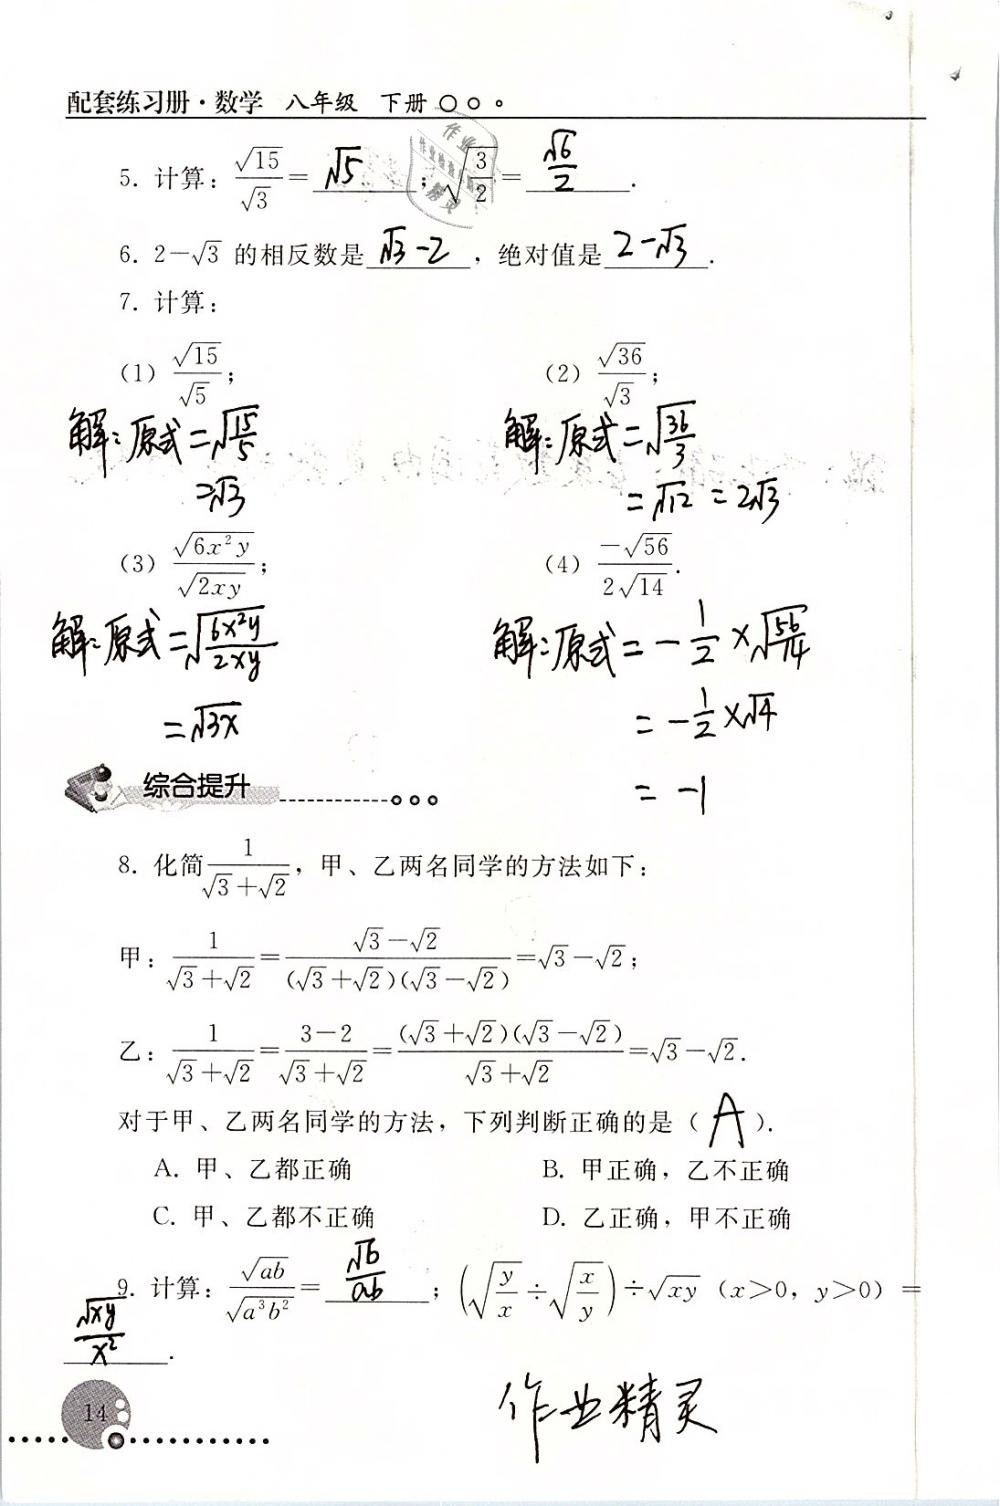 配套练习册·数学 八年级 下册
5. 计算：√15/√3=√5；√(3/2)=√6/2.
6. 2－√3 的相反数是 √3-2，绝对值是 2-√3.
7. 计算：
(1) √15/√5； (2) √36/√3；
解：原式=√(15/5) 解：原式=√(36/3)
=√3 =√12=2√3
(3) √(6x²y)/√(2xy)； (4) －√56/(2√14).
解：原式=√(6x²y/2xy) 解：原式=-1/2×√(56/14)
=√3x =-1/2×√4
综合提升 =-1
8. 化简1/(√3＋√2)，甲、乙两名同学的方法如下：
甲：1/(√3＋√2)=(√3－√2)/((√3＋√2)(√3－√2))=√3－√2；
乙：1/(√3＋√2)=(3－2)/(√3＋√2)=(√3＋√2)(√3－√2)/(√3＋√2)=√3－√2.
对于甲、乙两名同学的方法，下列判断正确的是（ A ）.
A. 甲、乙都正确 B. 甲正确，乙不正确
C. 甲、乙都不正确 D. 乙正确，甲不正确
9. 计算：√(ab)/√(a³b²)=√b/ab；(√(y/x)÷√(x/y))÷√(xy)（x＞0，y＞0）=
√xy/x².
作业精灵
14